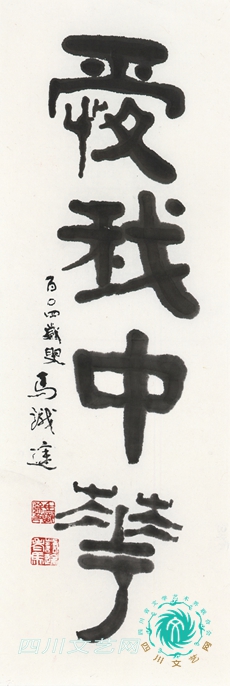 愛我中華
百〇四歲叟
馬識途
四川文艺网
四川文艺网